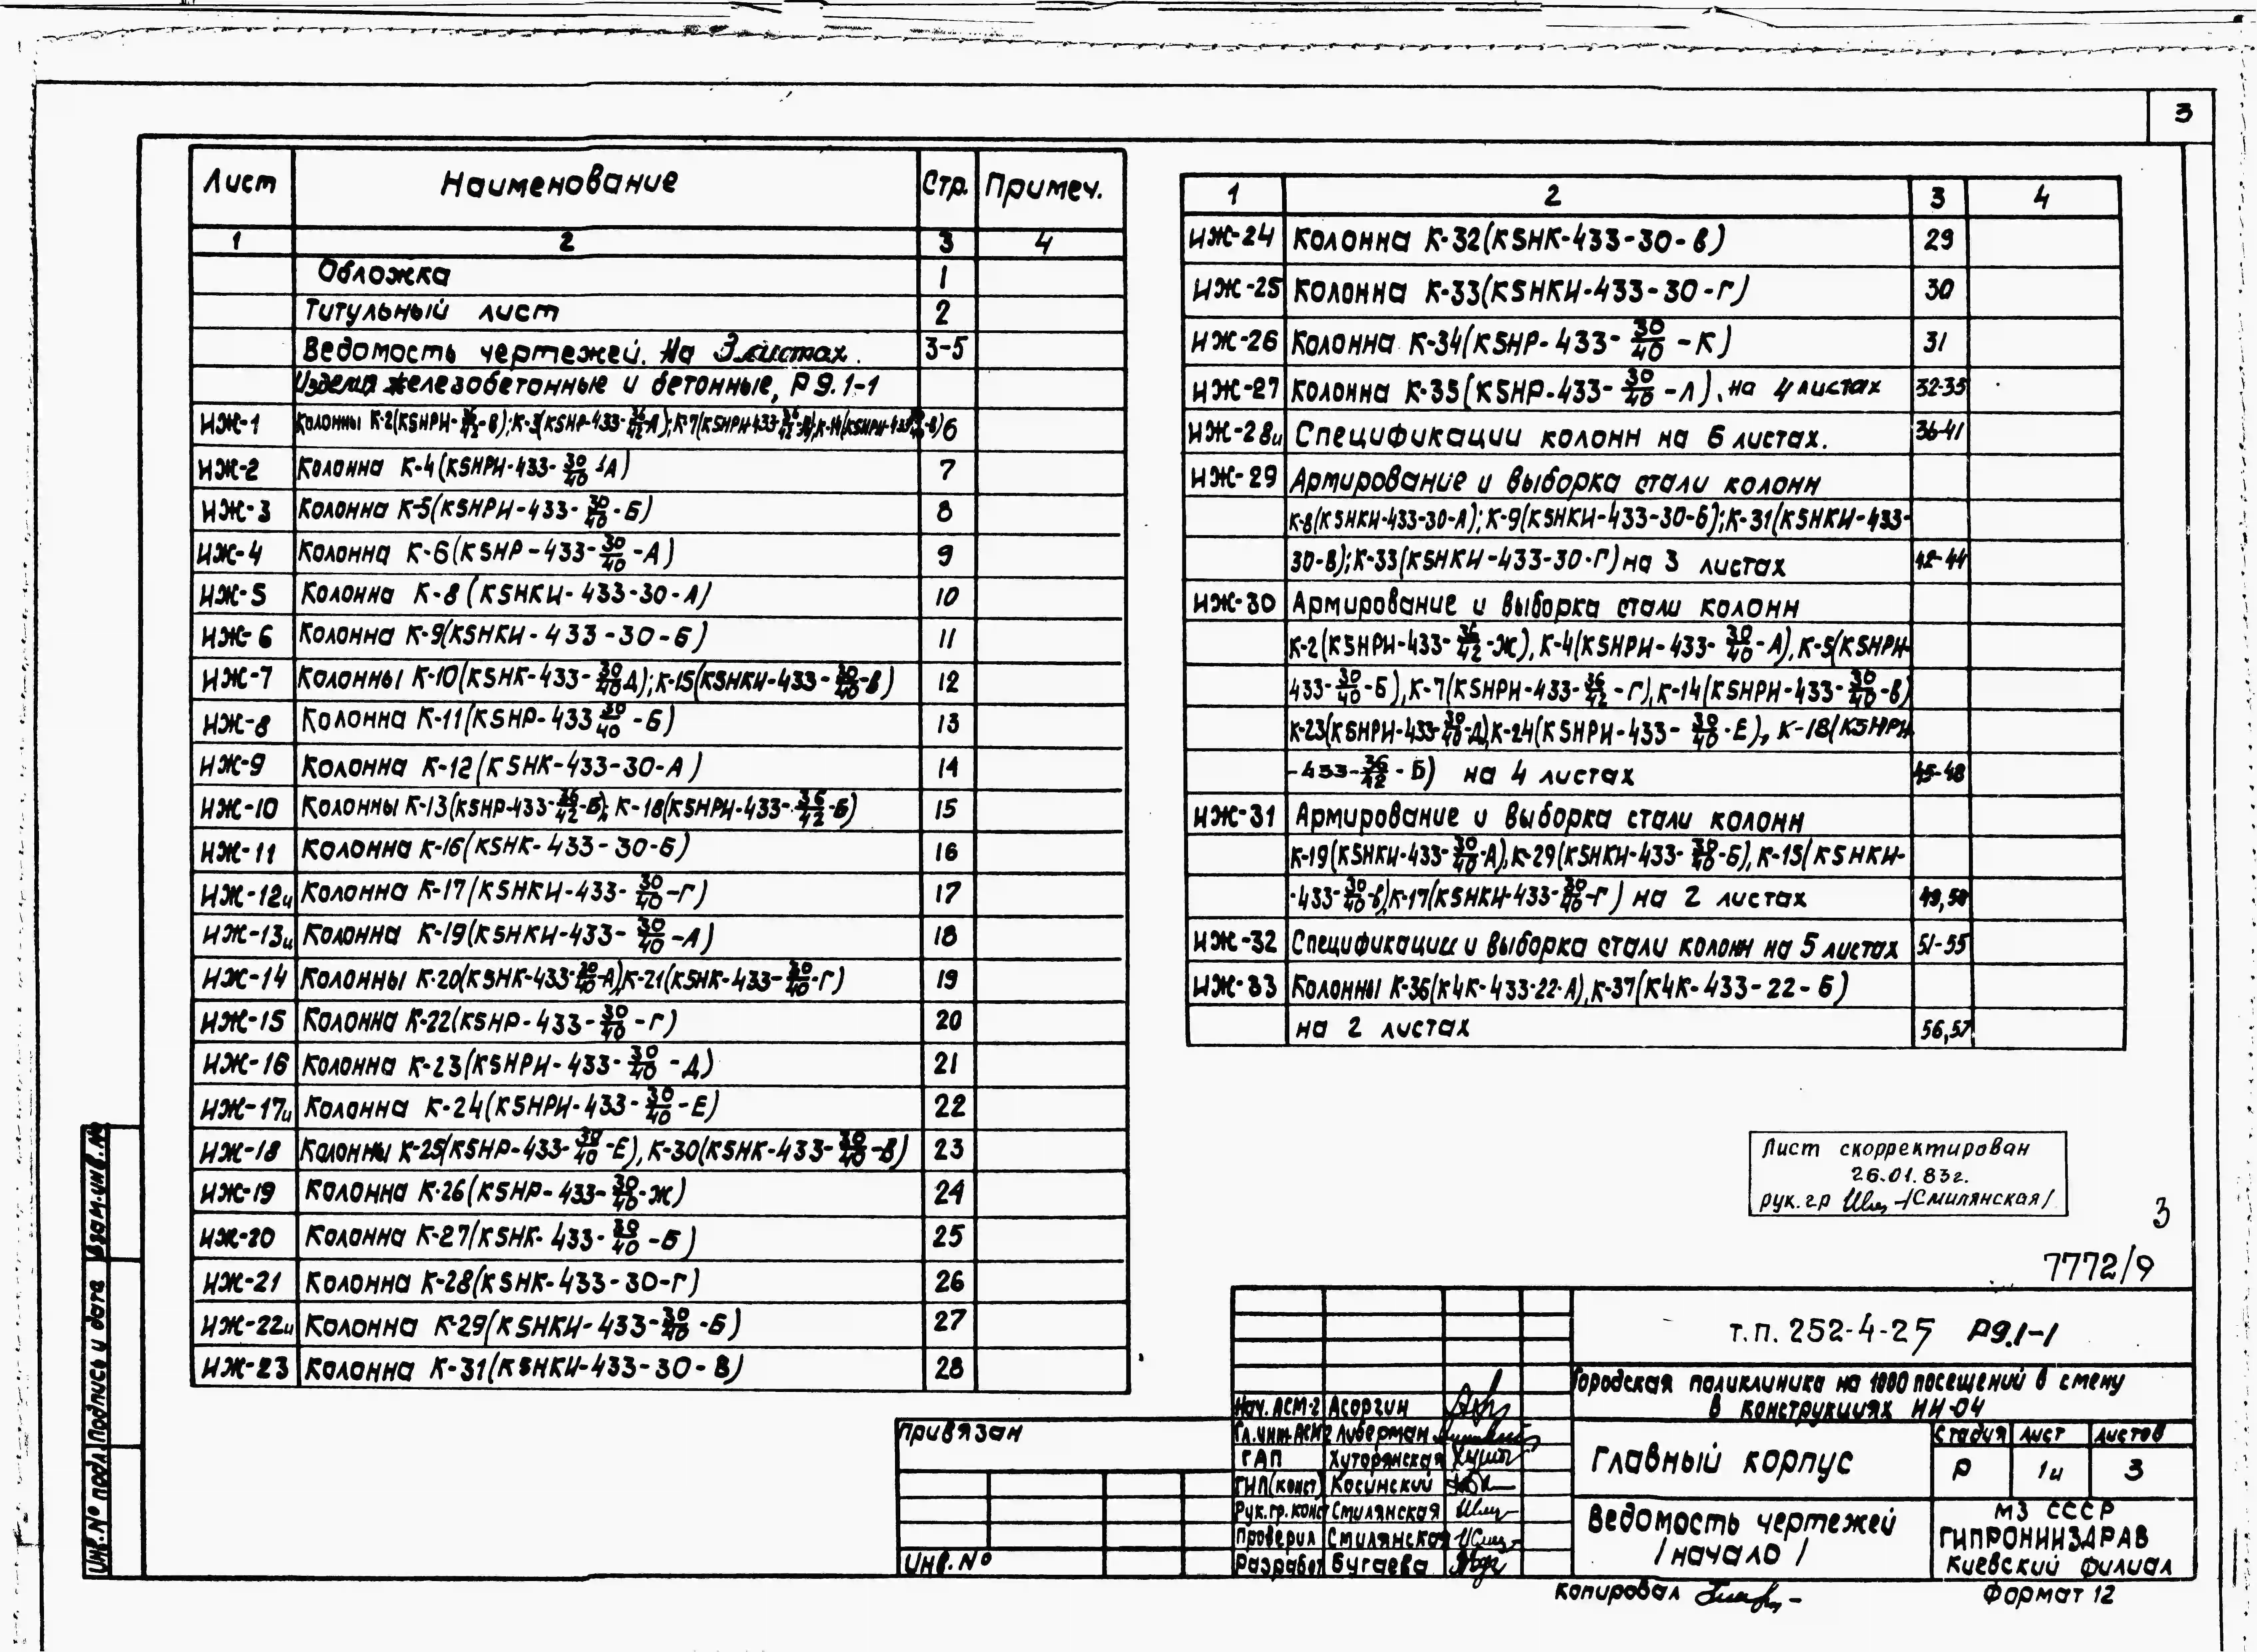 3
Лист Наименование Стр. Примеч.
1 2 3 4
Обложка 1
Титульный лист 2
Ведомость чертежей. На 3 листах. 3-5
Изделия железобетонные и бетонные, Р 9.1-1
ИЖ-1 Колонны К-2(К5НРИ- 36/42 -В); К-3(К5НР-433- 36/42 -А); К-7(К5НРИ-433- 36/42 6
ИЖ-2 Колонна К-4(К5НРИ-433- 30/40 -А) 7
ИЖ-3 Колонна К-5(К5НРИ-433- 30/40 -Б) 8
ИЖ-4 Колонна К-6(К5НР-433- 30/40 -А) 9
ИЖ-5 Колонна К-8(К5НКИ-433-30-А) 10
ИЖ-6 Колонна К-9(К5НКИ-433-30-Б) 11
ИЖ-7 Колонны К-10(К5НК-433- 30/40 Д); К-15(К5НКИ-433- 30/40 -В) 12
ИЖ-8 Колонна К-11(К5НР-433 30/40 -Б) 13
ИЖ-9 Колонна К-12(К5НК-433-30-А) 14
ИЖ-10 Колонны К-13(К5НР-433- 36/42 -Б); К-18(К5НРИ-433- 36/42 -Б) 15
ИЖ-11 Колонна К-16(К5НК-433-30-Б) 16
ИЖ-12и Колонна К-17(К5НКИ-433- 30/40 -Г) 17
ИЖ-13и Колонна К-19(К5НКИ-433- 30/40 -А) 18
ИЖ-14 Колонны К-20(К5НК-433- 30/40 -А), К-21(К5НК-433- 30/40 -Г) 19
ИЖ-15 Колонна К-22(К5НР-433- 30/40 -Г) 20
ИЖ-16 Колонна К-23(К5НРИ-433- 30/40 -Д) 21
ИЖ-17и Колонна К-24(К5НРИ-433- 30/40 -Е) 22
ИЖ-18 Колонны К-25(К5НР-433- 30/40 -Е), К-30(К5НК-433- 30/40 -В) 23
ИЖ-19 Колонна К-26(К5НР-433- 30/40 -Ж) 24
ИЖ-20 Колонна К-27(К5НК-433- 30/40 -Б) 25
ИЖ-21 Колонна К-28(К5НК-433-30-Г) 26
ИЖ-22и Колонна К-29(К5НКИ-433- 30/40 -Б) 27
ИЖ-23 Колонна К-31(К5НКИ-433-30-В) 28
1 2 3 4
ИЖ-24 Колонна К-32(К5НК-433-30-В) 29
ИЖ-25 Колонна К-33(К5НКИ-433-30-Г) 30
ИЖ-26 Колонна К-34(К5НР-433- 30/40 -К) 31
ИЖ-27 Колонна К-35(К5НР-433- 30/40 -Л). на 4 листах 32-35
ИЖ-28и Спецификации колонн на 6 листах. 36-41
ИЖ-29 Армирование и выборка стали колонн
К-8(К5НКИ-433-30-А); К-9(К5НКИ-433-30-Б); К-31(К5НКИ-433-
30-В); К-33(К5НКИ-433-30-Г) на 3 листах 42-44
ИЖ-30 Армирование и выборка стали колонн
К-2(К5НРИ-433- 36/42 -Ж), К-4(К5НРИ-433- 30/40 -А), К-5(К5НРИ-
433- 30/40 -Б), К-7(К5НРИ-433- 36/42 -Г), К-14(К5НРИ-433- 30/40 -В)
К-23(К5НРИ-433- 30/40 -Д), К-24(К5НРИ-433- 30/40 -Е), К-18(К5НРИ
-433- 36/42 -Б) на 4 листах 45-48
ИЖ-31 Армирование и выборка стали колонн
К-19(К5НКИ-433- 30/40 -А), К-29(К5НКИ-433- 30/40 -Б), К-15(К5НКИ-
-433- 30/40 -В), К-17(К5НКИ-433- 30/40 -Г) на 2 листах 49,50
ИЖ-32 Спецификации и выборка стали колонн на 5 листах 51-55
ИЖ-33 Колонны К-36(К4К-433-22-А), К-37(К4К-433-22-Б)
на 2 листах 56,57
Лист скорректирован
26.01.83г.
рук. гр /Смилянская/
3
7772/9
Т.П. 252-4-25 Р9.1-1
Городская поликлиника на 1000 посещений в смену
в конструкциях ИИ-04
Нач. АСМ-2 Асоргин
Гл.инж.АСМ2 Либерман
ГАП Хуторянская
ГИП(конст) Косинский
Рук.гр.конс Смилянская
Проверил Смилянская
Разработ Бугаева
Главный корпус
Стадия Лист Листов
Р 1и 3
Ведомость чертежей
/начало/
МЗ СССР
ГИПРОНИИЗДРАВ
Киевский филиал
Привязан
Инв.№
Копировал
Формат 12
Взам.инв.№
Подпись и дата
Инв.№ подл.